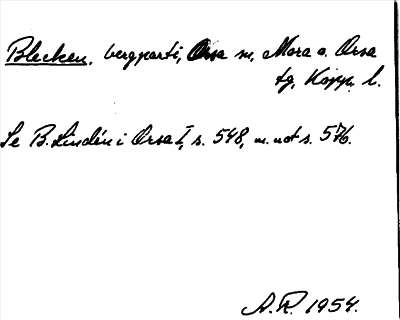 Blecken, bergparti, Orsa sn, Mora o. Orsa
tg, Kopp. l.
Se B. Lindén i Orsa I, s. 548, m. not s. 576.
A. R. 1954.